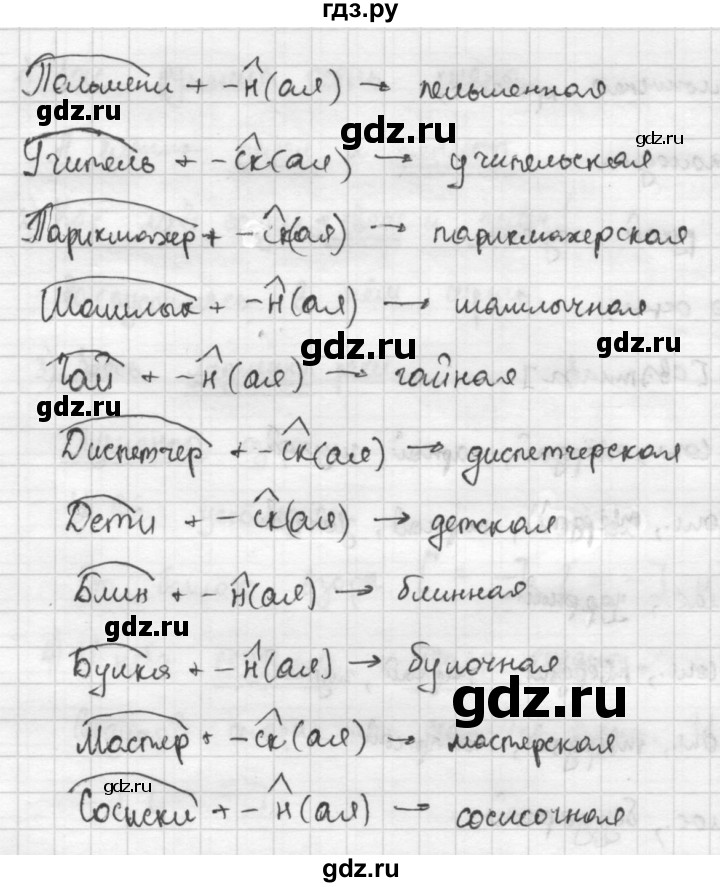 гдз.ру
Пельмени + -н(ая) → пельменная
gdz.ru gdz.ru gdz.ru
Учитель + -ск(ая) → учительская
Парикмахер + -ск(ая) → парикмахерская
Шашлык + -н(ая) → шашлычная
gdz.ru gdz.ru
Чай + -н(ая) → чайная
gdz.ru
Диспетчер + -ск(ая) → диспетчерская
Дети + -ск(ая) → детская
Блин + -н(ая) → блинная
gdz.ru
Булка + -н(ая) → булочная
gdz.ru
Мастер + -ск(ая) → мастерская
gdz.ru
Сосиски + -н(ая) → сосисочная
gdz.ru
gdz.ru